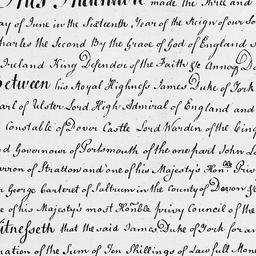 This Indenture made the Three and
ay of June in the Sixteenth Year of the Reign of our So
Charles the Second By the Grace of God of England S
Ireland King Defendor of the Faith &c Anno D
Between his Royal Highness James Duke of York
arl of Ulster Lord High Admiral of England and
Constable of Dover Castle Lord Warden of the Cinq
d Governour of Portsmouth of the one part John L
arron of Stratton and one of his Majesty's Honble Priv
r George Carteret of Saltrum in the County of Devon
e of his Majesty's most Honble privy Council of the
Witnesseth that the said James Duke of York for an
ration of the Sum of Ten Shillings of Lawfull Mone